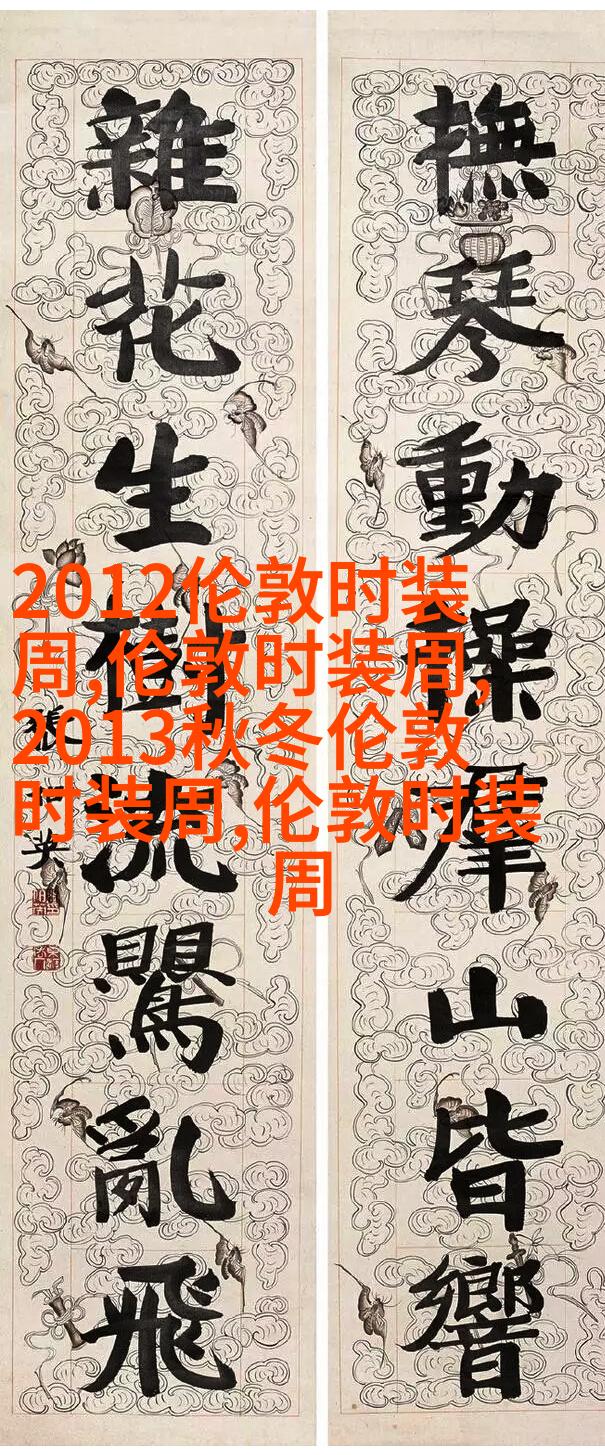 撫琴動操羣山皆響
雜花生樹流鸎亂飛
張伯英
2012伦敦时装
周,伦敦时装周,
2013秋冬伦敦
时装周,伦敦时装
周